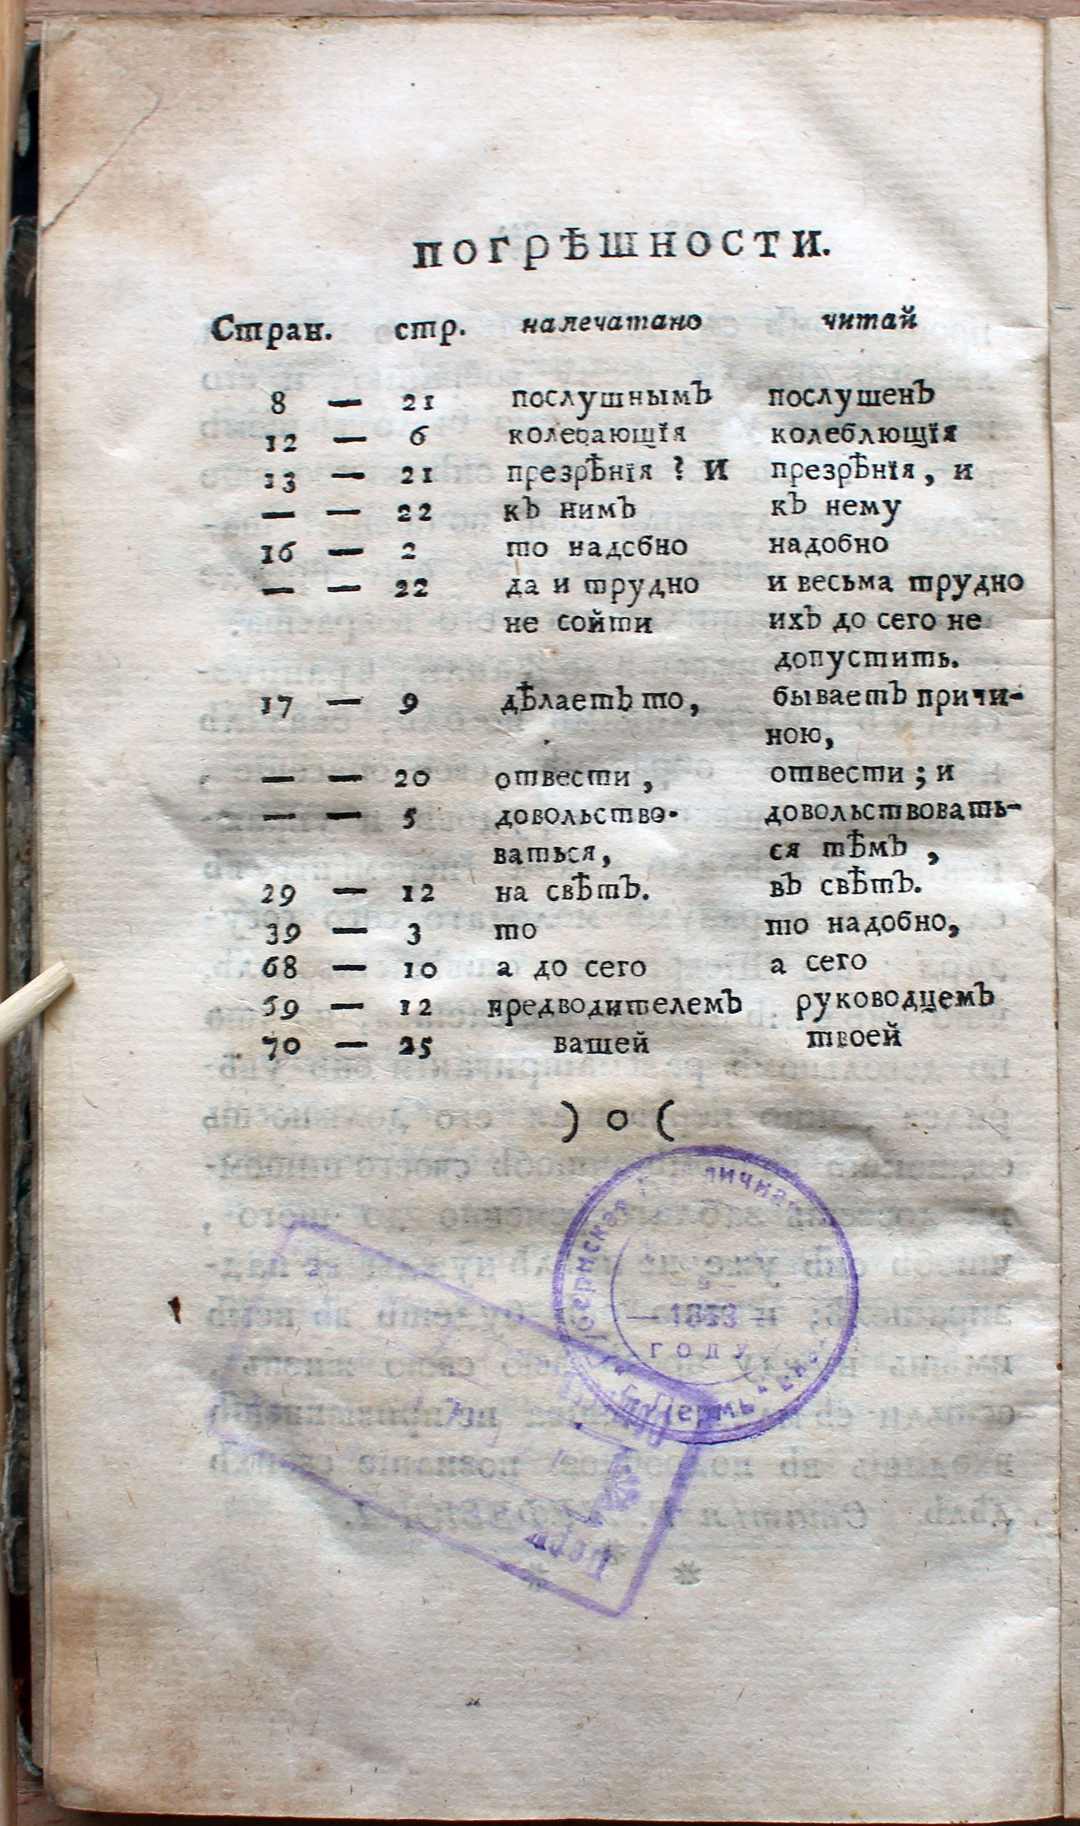 ПОГРѢШНОСТИ.
Стран. стр. напечатано читай
8 — 21 послушнымЪ послушенЪ
12 — 6 колебающїя колеблющїя
13 — 21 презрѢнїя ? И презрѢнїя , и
— — 22 кЪ нимЪ кЪ нему
16 — 2 то надобно надобно
— — 22 да и трудно и весьма трудно
не сойти ихЪ до сего не
допустить.
17 — 9 дѢлаетЪ то, бываетЪ причи-
ною,
— — 20 отвести , отвести ; и
— — 5 довольство- довольствовать-
ваться, ся тѢмЪ ,
29 — 12 на свѢтЪ. вЪ свѢтЪ.
39 — 3 то то надобно,
68 — 10 а до сего а сего
69 — 12 предводителемЪ руководцемЪ
70 — 25 вашей твоей
) о (
году
Пермь
Перм